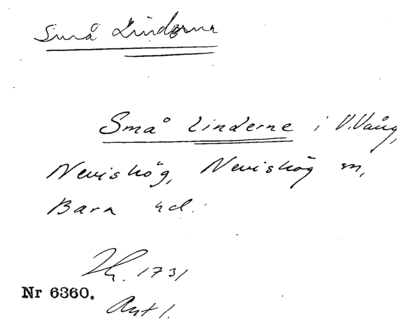 Små Linderne
Små Linderne i V. Vång,
Nevishög, Nevishög sn,
Bara hd.
1731
Nr 6360.
Akt 1.